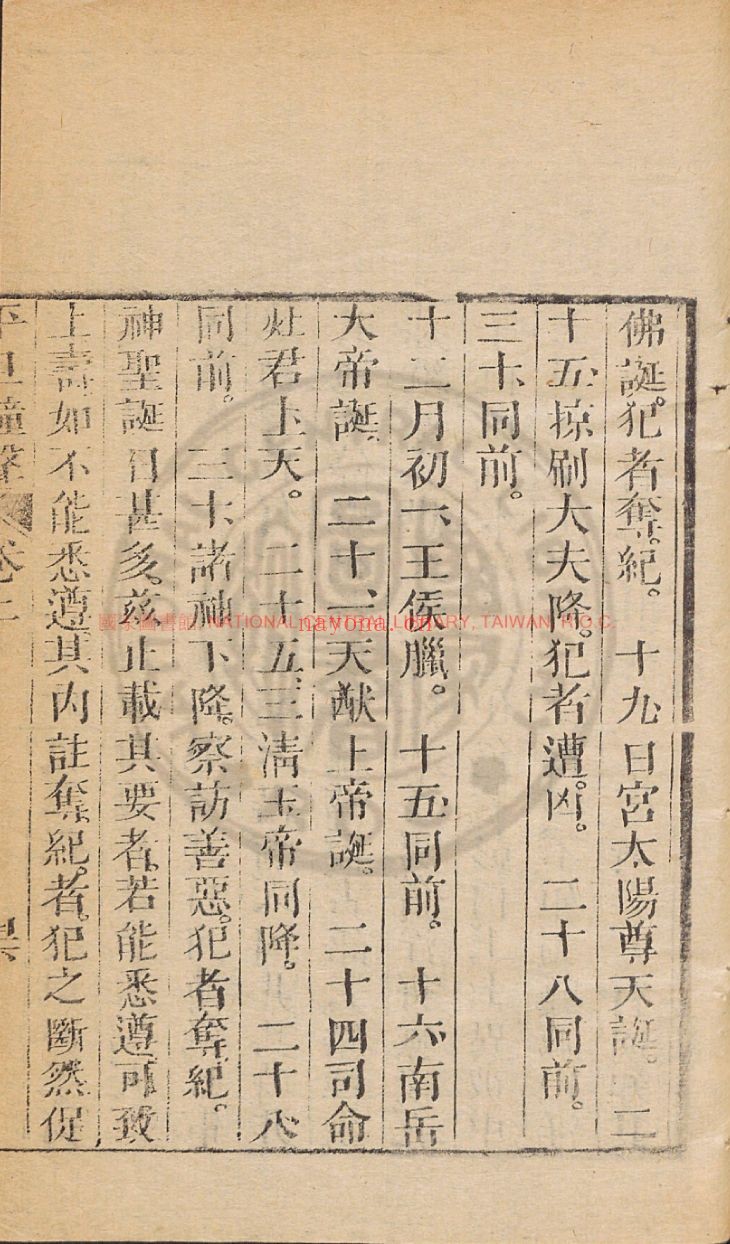 佛誕。犯者奪紀。　十九、日宮太陽尊天誕。　二
十五、掠刷大夫降。犯者遭凶。　二十八同前。
三十、同前。
十二月初一、王侯臘。　十五同前。　十六南岳
大帝誕。　二十一、天猷上帝誕。　二十四司命
灶君上天。　二十五、三清玉帝同降。　二十八
同前。　三十、諸神下降。察訪善惡。犯者奪紀。
神聖誕日甚多。茲止載其要者。若能悉遵。可致
上壽。如不能悉遵。其內註奪紀。者。犯之斷然促
平旦鐘聲　卷上
國家圖書館, NATIONAL CENTRAL LIBRARY, TAIWAN, R.O.C.